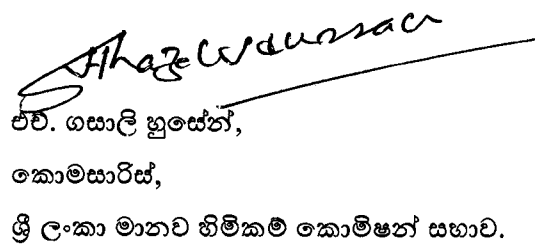 එච්. ගසාලි හුසේන්,
කොමසාරිස්,
ශ්‍රී ලංකා මානව හිමිකම් කොමිෂන් සභාව.